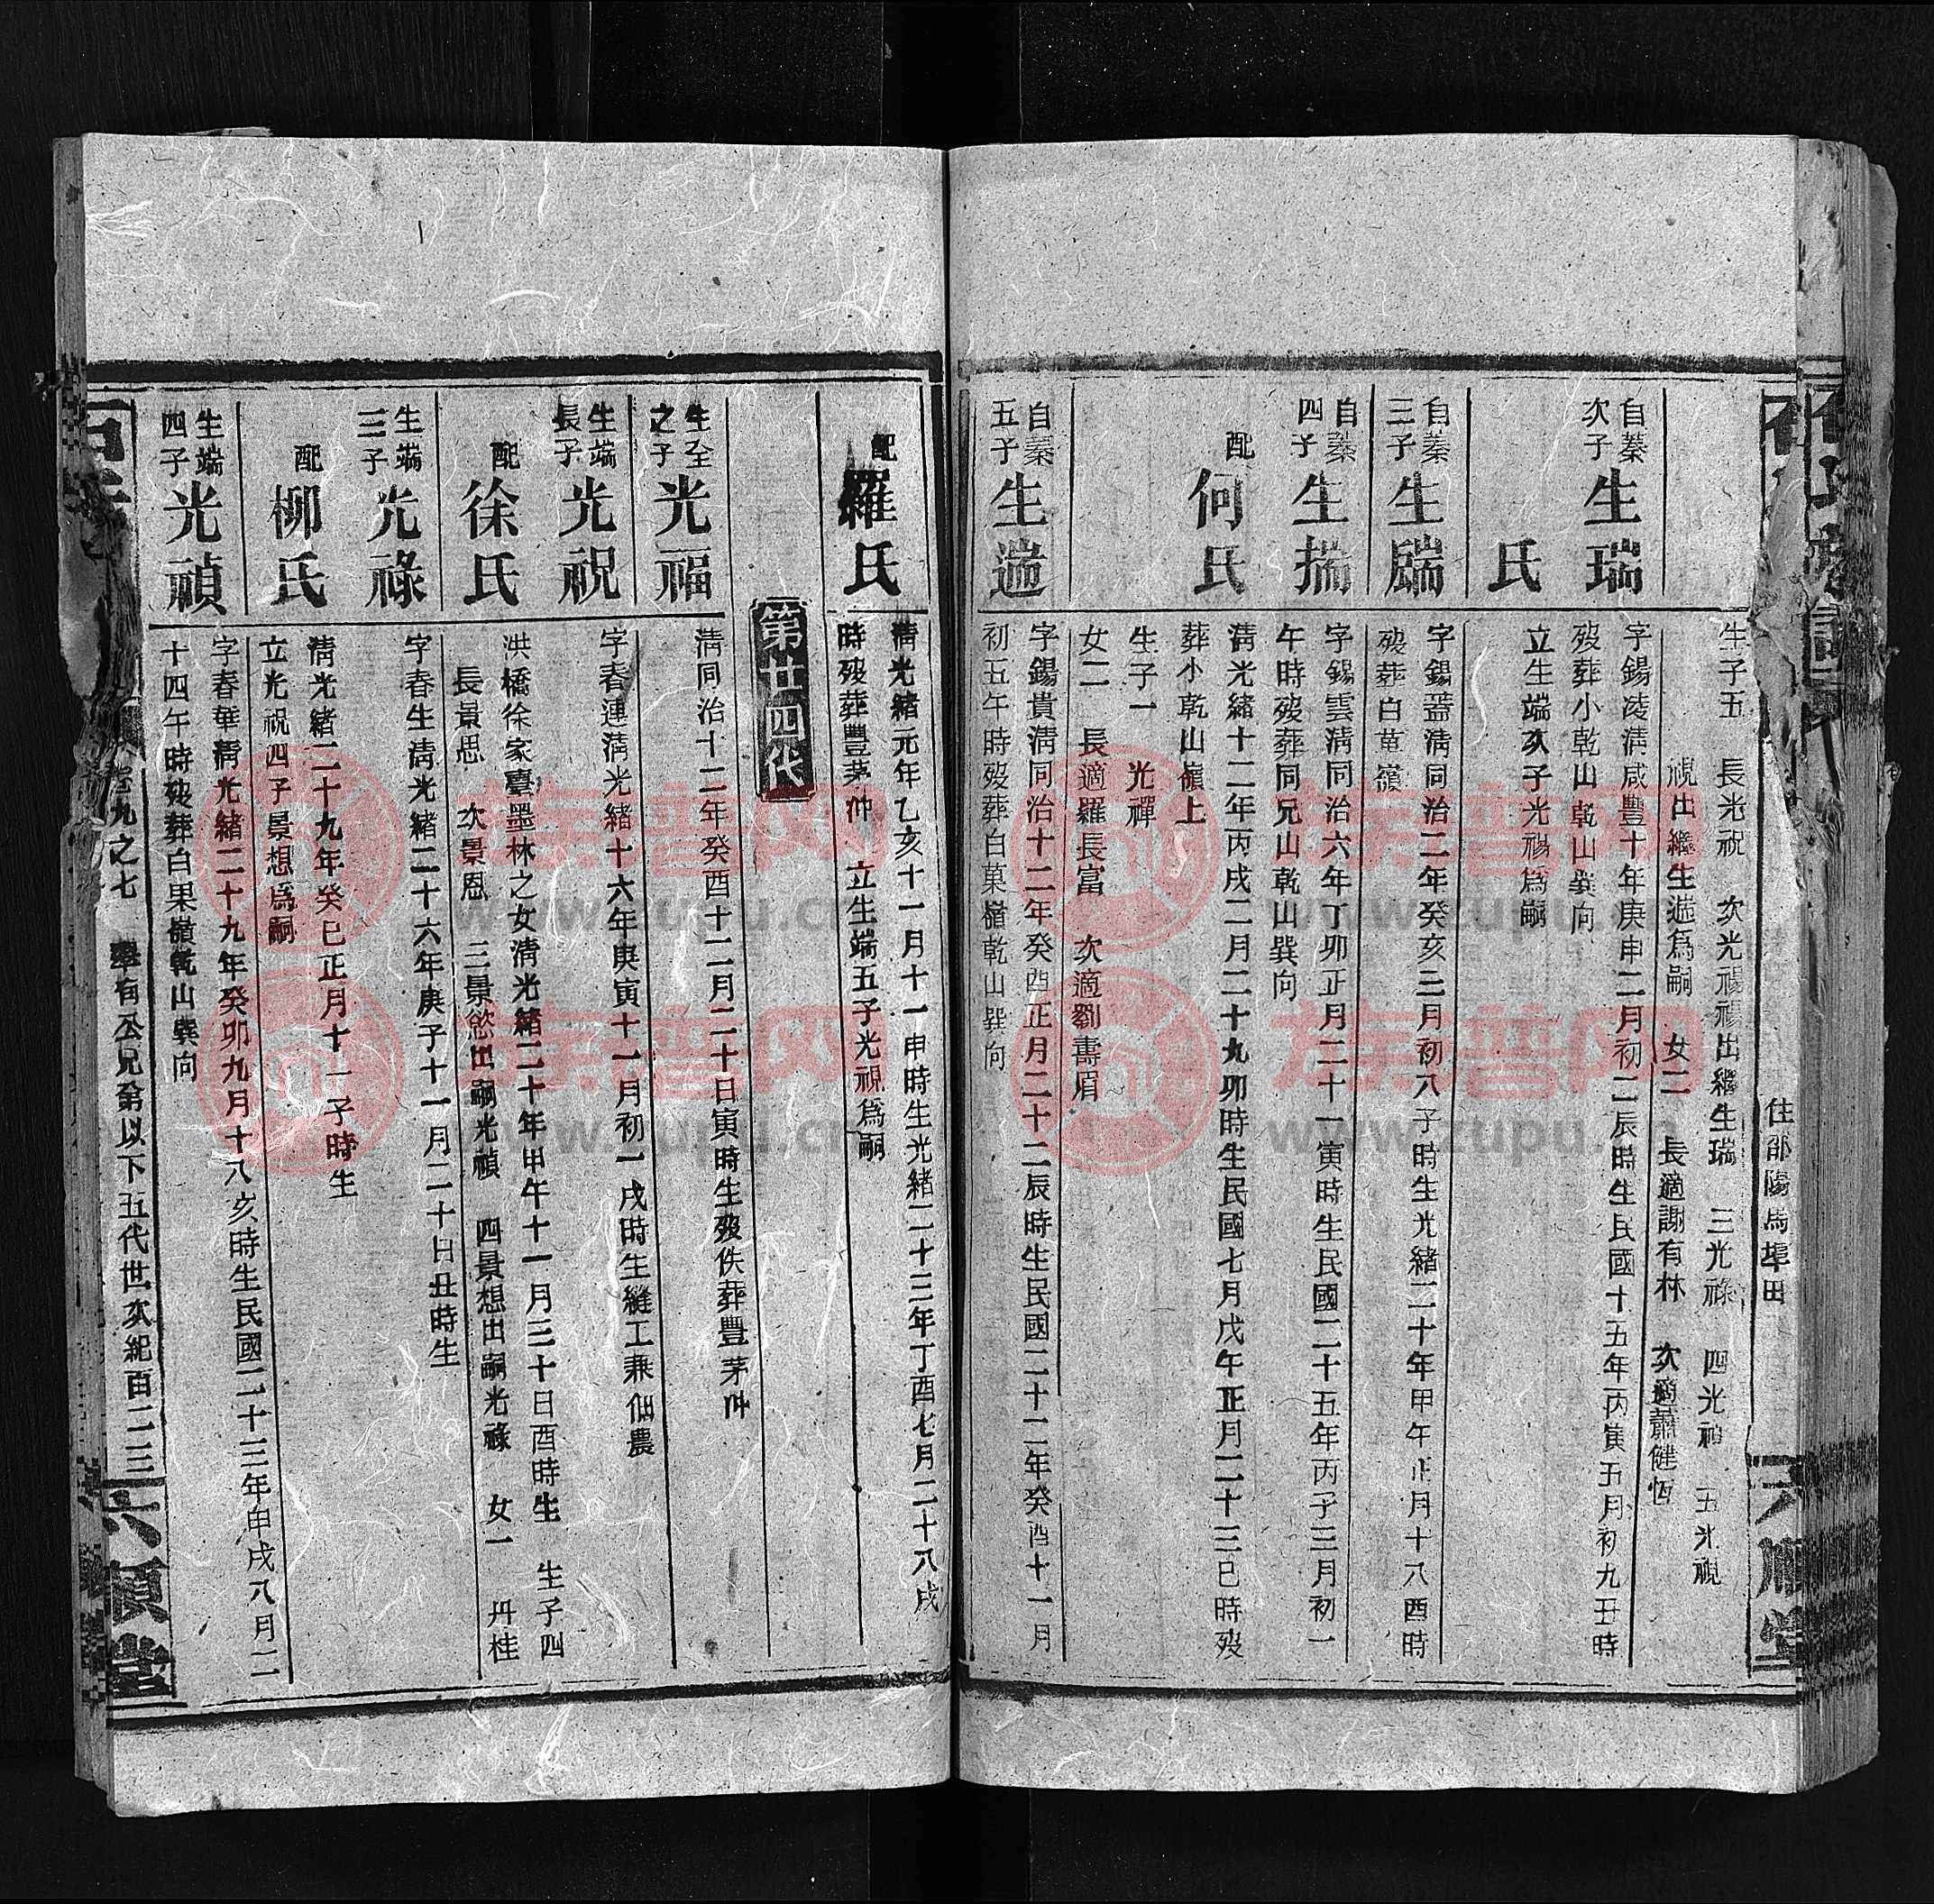 住邵陽馬埠田
六順堂
生子五 長光祝 次光禓禓出繼生瑞 三光祿 四光禎 五光視
視出繼生遄爲嗣 女二 長適謝有林 次適蕭健恆
自蓁次子
生瑞
字錫凌淸咸豐十年庚申二月初二辰時生民國十五年丙寅五月初九丑時
歿葬小乾山乾山巽向
立生端次子光禓爲嗣
氏
自蓁三子
生腨
字錫蓋淸同治二年癸亥三月初八子時生光緒二十年甲午正月十八酉時
歿葬白菓嶺
自蓁四子
生揣
字錫雲淸同治六年丁卯正月二十一寅時生民國二十五年丙子三月初一
午時歿葬同兄山乾山巽向
配
何氏
淸光緒十二年丙戌二月二十九卯時生民國七月戊午正月二十三巳時歿
葬小乾山嶺上
生子一 光禪
女二 長適羅長富 次適劉壽眉
自蓁五子
生遄
字錫貴淸同治十二年癸酉正月二十二辰時生民國二十二年癸酉十一月
初五午時歿葬白菓嶺乾山巽向
配
羅氏
淸光緒元年乙亥十一月十一申時生光緒二十三年丁酉七月二十八戌
時歿葬豐茅冲 立生端五子光視爲嗣
第廿四代
生至之子
光福
淸同治十二年癸酉十二月二十日寅時生歿佚葬豐茅冲
生端長子
光祝
字春運淸光緒十六年庚寅十一月初一戌時生縫工兼佃農
配
徐氏
洪橋徐家臺墨林之女淸光緒二十年甲午十一月三十日酉時生 生子四
長景思 次景恩 三景慾出嗣光禎 四景想出嗣光祿 女一 丹桂
生端三子
光祿
字春生淸光緒二十六年庚子十一月二十日丑時生
配
柳氏
淸光緒二十九年癸巳正月十一子時生
立光祝四子景想爲嗣
生端四子
光禎
字春華淸光緒二十九年癸卯九月十八亥時生民國二十三年甲戌八月二
十四午時歿葬白果嶺乾山巽向
卷九之七 學有公兄弟以下五代世次紀百二三
六順堂
族谱网
www.zupu.cn
族谱网
www.zupu.cn
族谱网
www.zupu.cn
族谱网
www.zupu.cn